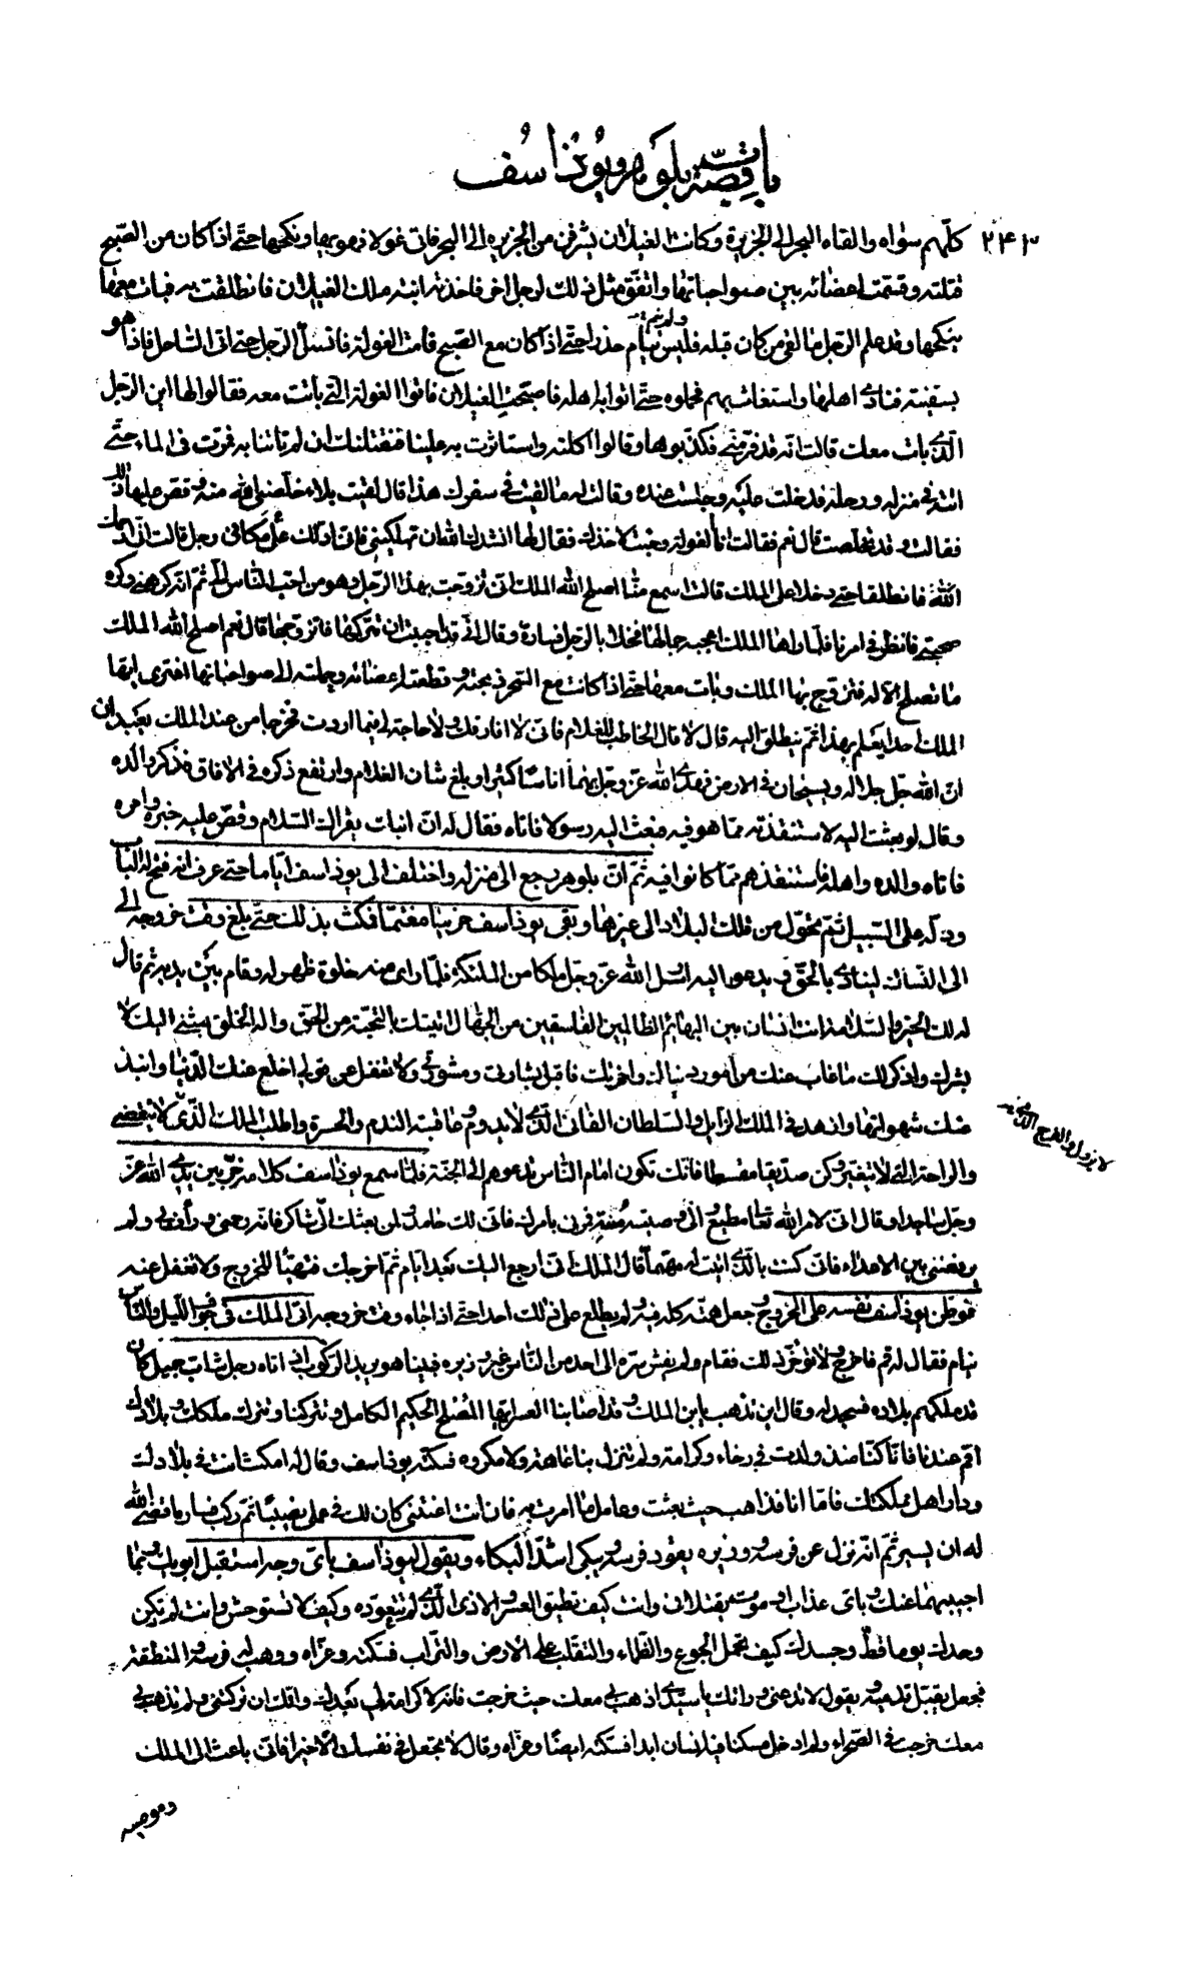 باقي قصّة بلوهر ويوذاسف
٢٤٣ كلّهم سواه والقاه البحر الى الجزيرة وكانت الغيلان يشرفن من الجزيره الى البحر فاتى غولا فهويها ونكحها حتّى اذا كان من الصّبح
قتلته وقسّمت اعضائه بين صواحباتها واتّفق مثل ذلك لرجل آخر فاخذته ابنة ملك الغيلان فانطلقت به فبات معها
ينكحها وقد علم الرّجل ما لقى من كان قبله فليس ينام حذرا حتّى اذا كان مع الصّبح نامت الغولة فانسلّ الرّجل حتى اتى السّاحل فاذا هو
بسفينة فنادى اهلها واستغاث بهم فحملوه حتّى اتوا به اهله فاصبحت الغيلان فاتوا الغولة الّتي باتت معه فقالوا لها اين الرّجل
الّذى بات معك قالت انّه قد فرّ منّى فكذّبوها وقالوا اكلته واستاثرت به علينا فنقتلنك ان لم تاتنا به فمرّت فى الماء حتّى
اتته فى منزله ورحله فدخلت عليه وجلست عنده وقالت له ما لقيت فى سفرك هذا قال لقيت بلاء خلّصنى الله منه وقصّ عليها ذلك
فقالت وقد تخلّصت قال نعم فقالت انا الغولة وجئت لاخذك فقال لها انشدك الله ان تهلكينى فانى ادلّك على مكانى رجل قالت انى ارحمك
فانطلقا حتى دخلا على الملك قالت اسمع منّا اصلح الله الملك انى تزوّجت بهذا الرّجل وهو من احبّ النّاس الىّ ثمّ انه كرهنى وكره
صحبتى فانظر فى امرنا فلمّا راها الملك اعجبه جمالها فخلا بالرجل فسارّه وقال انى قد احببت ان تتركها فاتزوّجها قال نعم اصلح الله الملك
ما تصلح الّا له فتزوّج بها الملك وبات معها حتّى اذا كانت مع السّحر ذبحته وقطعت اعضائه وحملته الى صواحباتها افترى ايّها
الملك احدا يعلم بهذا ثمّ ينطلق اليه قال لا قال الخاطب للغلام فانّى لا افارقك ولا حاجة لى فيما اردت فخرجا من عند الملك يعبدان
الله جلّ جلاله ويسيحان فى الارض فهدى الله عزّ وجلّ بهما اناسا كثيرا وبلغ شان الغلام وارتفع ذكره فى الافاق فذكر والده
وقال لو بعثت اليه لاستنقذته ممّا هو فيه فبعث اليه رسولا فاتاه فقال له انّ ابنك يقرئك السّلام وقصّ عليه خبره وامره
فاتاه والده واهله فاستنقذهم ممّا كانوا فيه ثمّ انّ بلوهر رجع الى منزله واختلف الى يوذاسف ايّاما حتى عرف انه فتح له الباب
ودلّه على السّبيل ثم تحوّل من تلك البلاد الى غيرها وبقى يوذاسف حزينا مغتمّا فمكث بذلك حتّى بلغ وقت خروجه الى
الى النّساك لينادى بالحقّ و يدعو اليه ارسل الله عزّ وجلّ ملكا من الملئكة فلمّا راى منه خلوة ظهر له وقام بين يديه ثم قال
له لك الخير والسّلامة انت انسان بين البهائم الظالمين الفاسقين من الجهّال اتيتك بالتّحيّة من الحقّ واله الخلق بعثنى اليك لا
بشّرك واذكر لك ما غاب عنك من امور دنياك واخرتك فاقبل بشارتى ومشورتى ولا تغفل عن قولى اخلع عنك الدّنيا وانبذ
عنك شهواتها وازهد فى الملك الزائل والسّلطان الفانى الّذى لا يدوم وعاقبته الندم والحسرة واطلب الملك الّذى لا ينقضى
لا يزول والفرح الّذى
والراحة الّتى لا تتغيّر وكن صدّيقا مقسطا فانّك تكون امام النّاس تدعوهم الى الجنّة فلمّا سمع يوذاسف كلامه خرّ بين يدى الله عزّ
وجلّ ساجدا وقال انى لامر الله تعالى مطيع والى وصيّته منته فمرنى بامرك فانّى لك حامد ولمن بعثك الىّ شاكر فانّه رحمنى ورأف بى ولم
يرفضنى بين الاعداء فانى كنت بالّذى اتيت له مهتمّا قال الملك انى ارجع اليك بعد ايّام ثمّ اخرجك فتهيّأ للخروج ولا تغفل عنه
فوطّن يوذاسف نفسه على الخروج وجعل همّته كله فيه ولم يطلع على ذلك احدا حتّى اذا جاء وقت خروجه اتى الملك فى جوف اللّيل والنّاس
نيام فقال له قم فاخرج ولا تؤخّر ذلك فقام ولم يفش سرّه الى احد من النّاس غير وزيره فبينا هو يريد الرّكوب اذ اتاه رجل شابّ جميل كان
قد ملكهم بلاده فسجد له وقال اين تذهب يا بن الملك وقد اصابنا العسر ايّها المصلح الحكيم الكامل وتتركنا وتترك ملكك وبلادك
اقم عندنا فانّا كنّا منذ ولدت فى رخاء وكرامة ولم تنزل بنا عاهة ولا مكروه فسكّته يوذاسف وقال له امكث انت فى بلادك
ودار اهل مملكتك فامّا انا فذاهب حيث بعثت وعامل ما امرت به فان انت اعنتنى كان لك فى عملى نصيبا ثم ركب فسار ما قضى الله
له ان يسير ثمّ انّه نزل عن فرسه ووزيره يقود فرسه ويبكى اشدّ البكاء ويقول ليوذاسف باىّ وجه استقبل ابويك وبما
اجيبهما عنك وباىّ عذاب او موت يقتلانى وانت كيف تطيق العسر والاذى الّذى لم تتعوّده وكيف لا تستوحش وانت لم تكن
وحدك يوما قطّ وجسدك كيف تحمل الجوع والظّماء والتقلّب على الارض والتّراب فسكّته وعزّاه ووهب له فرسه والمنطقة
فجعل يقبّل قدميه ويقول لا تدعنى ورائك يا سيّدى اذهب بى معك حيث خرجت فانّه لا كرامة لى بعدك وانّك ان تركتنى ولم تذهب بى
معك خرجت فى الصّحراء ولم ادخل مسكنا فيه انسان ابدا فسكّته ايضا وعزّاه وقال لا تجعل فى نفسك الّا خيرا فانّى باعث الى الملك
وموصيه